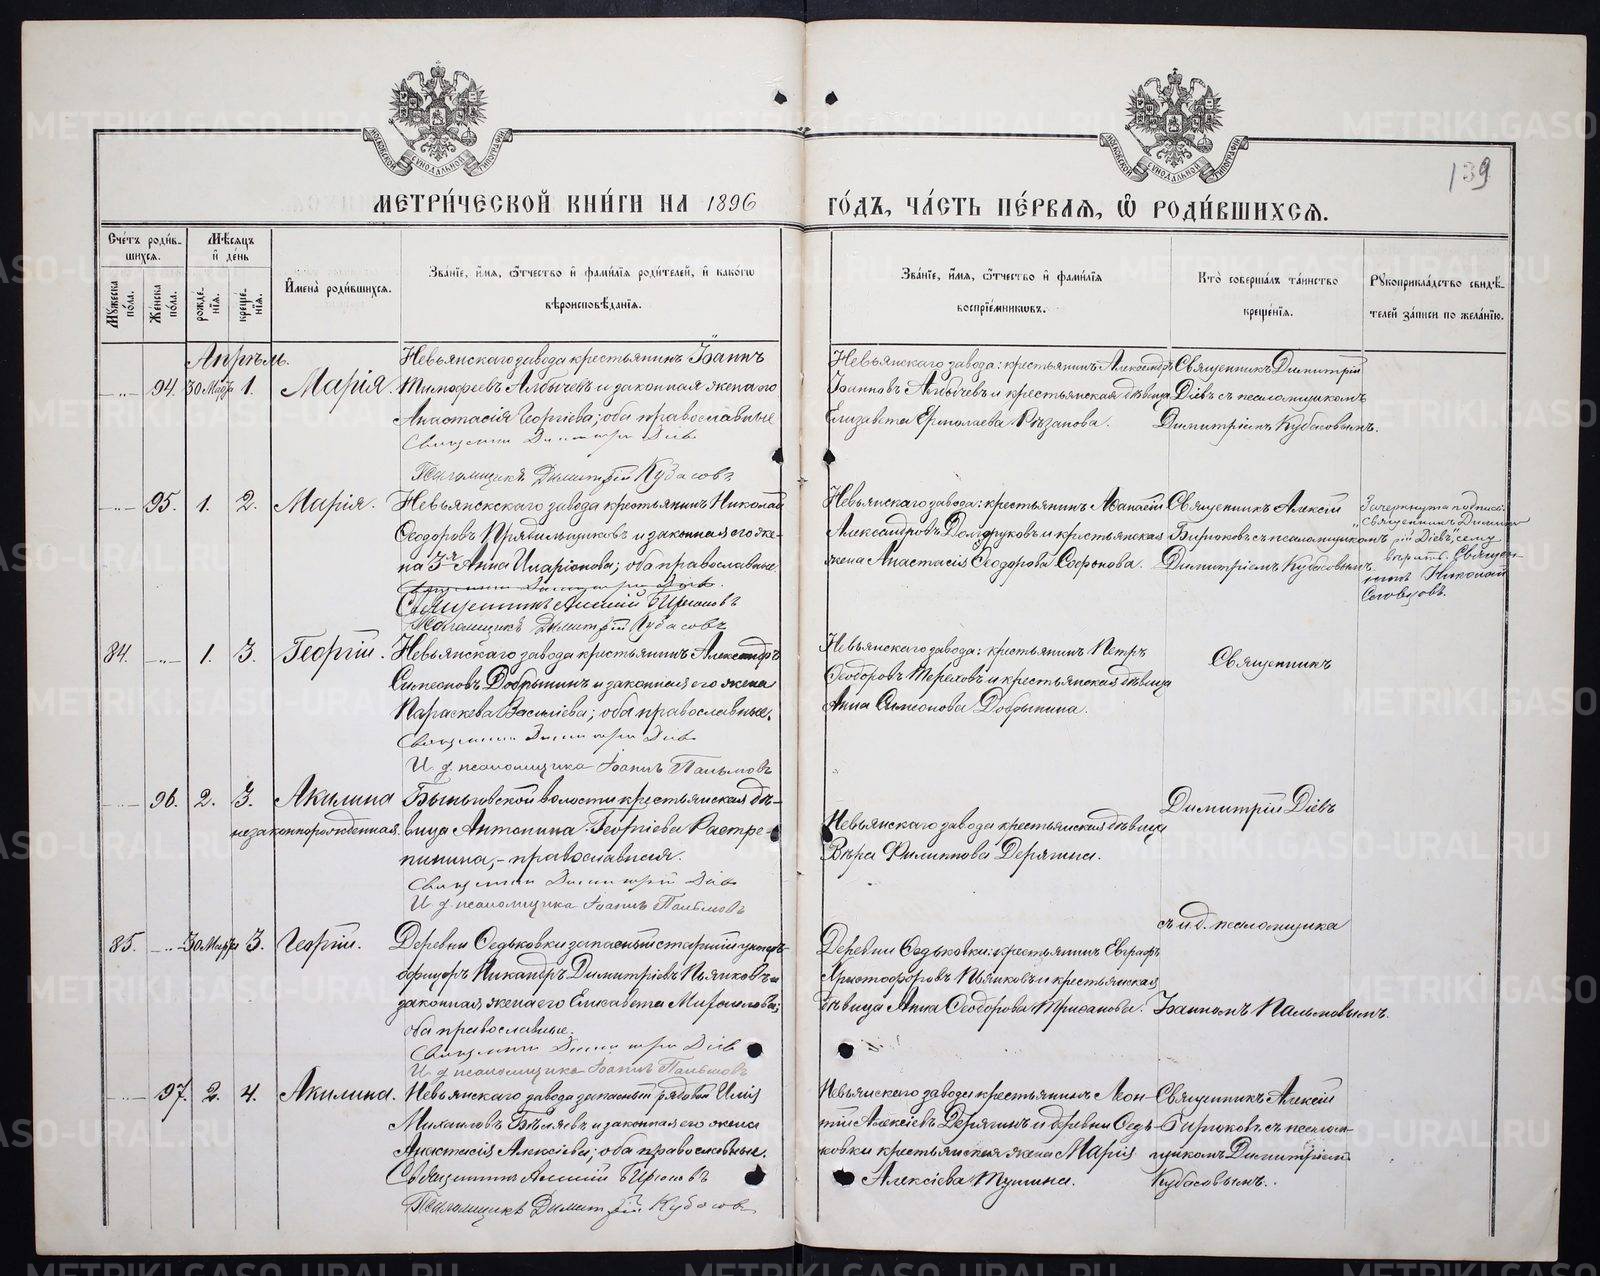 МОСКОВСКОЙ СѴНОДАЛЬНОЙ ТИПОГРАФІИ
МОСКОВСКОЙ СѴНОДАЛЬНОЙ ТИПОГРАФІИ
139
МЕТРИ́ЧЕСКОЙ КНИ́ГИ НА 1896 ГО́ДЪ, ЧА́СТЬ ПЕ́РВАЯ, Ѡ҆ РОДИ́ВШИХСЯ.
Сче́тъ роди́в-
шихся.
Мѣ́сяцъ
и҆ де́нь
Мꙋ́жеска по́ла.
Же́нска по́ла.
рожде́нїя.
креще́нїя.
И҆мена̀ роди́вшихся.
Зва́нїе, и҆́мя, ѻ҆́тчество и҆ фами́лїя роди́телей, и҆ како́гѡ
вѣроисповѣ́данїя.
Зва́нїе, и҆́мя, ѻ҆́тчество и҆ фами́лїя
воспрїе́мникѡвъ.
Кто̀ соверша́лъ та́инство
креще́нїя.
Рꙋкоприкла́дство свидѣ́-
телей за́писи по жела́нїю.
Апрѣль.
94. 30 Марта 1. Марія.
Невьянскаго завода крестьянинъ Іоаннъ
Тимофеевъ Албычевъ и законная жена его
Анастасія Георгіева; оба православные
Священникъ Димитрій Діевъ
Псаломщикъ Димитрій Кубасовъ
Невьянскаго завода: крестьянинъ Александръ
Іоанновъ Албычевъ и крестьянская дѣвица
Елизавета Ермолаева Рѣзанова.
Священникъ Димитрій
Діевъ съ псаломщикомъ
Димитріемъ Кубасовымъ.
95. 1. 2. Марія.
Невьянскскаго завода крестьянинъ Николай
Ѳеодоровъ Прядильщиковъ и законная его же-
на 3й Анна Иларіонова; оба православные
Священникъ Димитрій Діевъ.
Священникъ Алексій Бирюковъ
Псаломщикъ Димитрій Кубасовъ
Невьянскаго завода: крестьянинъ Аѳанасій
Александровъ Долгоруковъ и крестьянская
жена Анастасія Ѳеодорова Софонова.
Священникъ Алексій
Бирюковъ съ псаломщикомъ
Димитріемъ Кубасовымъ.
Зачеркнута подпись:
„Священникъ Димит-
рій Діевъ", сему
вѣрить. Священ-
никъ Николай
84. 1. 3. Георгій.
Невьянскаго завода крестьянинъ Александръ
Симеоновъ Добрынинъ и законная его жена
Параскева Васильева; оба православные.
Священникъ Димитрій Діевъ
И. д. псаломщика Іоаннъ Пальмовъ
Невьянскаго завода: крестьянинъ Петръ
Ѳеодоровъ Тереховъ и крестьянская дѣвица
Анна Симеонова Добрынина.
Священникъ
96. 2. 3. Акилина
незаконнорожденная.
Быньговской волости крестьянская дѣ-
вица Антонина Георгіева Растре-
пинина, - православная.
Священникъ Димитрій Діевъ
И. д. псаломщика Іоаннъ Пальмовъ
Невьянскаго завода крестьянская дѣвица
Вѣра Филиппова Дерягина.
Димитрій Діевъ
85. 30 Марта 3. Георгій.
Деревни Ѳедьковки запасный старшій унтеръ-
офицеръ Никандръ Димитріевъ Пьянковъ и
законная жена его Елизавета Мирошлова;
оба православные.
Священникъ Димитрій Діевъ
И. д. псаломщика Іоаннъ Пальмовъ
Деревни Ѳедьковки: крестьянинъ Евграфъ
Христофоровъ Пьянковъ и крестьянская
дѣвица Анна Ѳеодорова Трифанова.
съ и. д. псаломщика
Іоанномъ Пальмовымъ.
97. 2. 4. Акилина.
Невьянскаго завода запасный рядовой Илія
Михаиловъ Бѣляевъ и законная его жена
Анастасія Алексіева; оба православные.
Священникъ Алексій Бирюковъ
Псаломщикъ Димитрій Кубасовъ
Невьянскаго завода крестьянинъ Леон-
тій Алексіевъ Дерягинъ и деревни Ѳедь-
ковки крестьянская жена Марія
Алексіева Тушина.
Священникъ Алексій
Бирюковъ съ псалом-
щикомъ Димитріемъ
Кубасовымъ.
METRIKI.GASO-URAL.RU